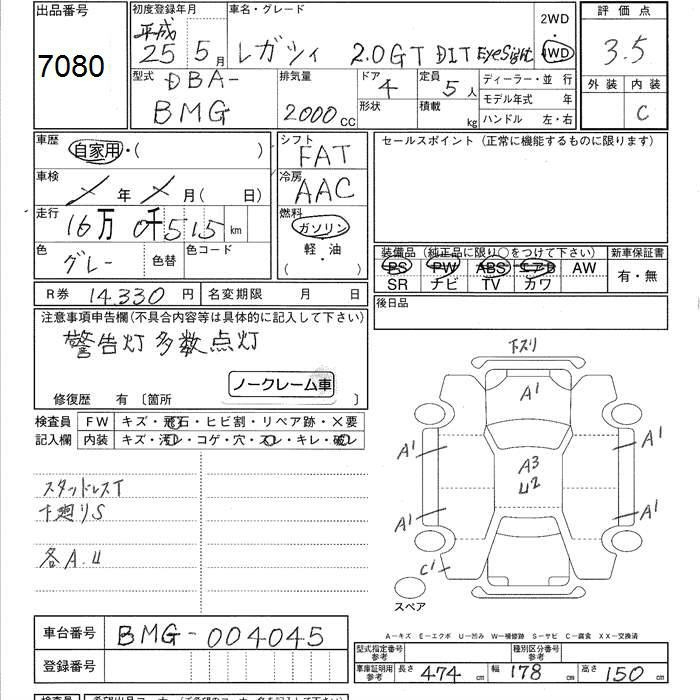 出品番号
7080
初度登録年月
平成
25 5月
車名・グレード
レガシィ 2.0GT DIT EyeSight
2WD
・
4WD
評価点
3.5
外装 内装
C
型式
DBA-
BMG
排気量
2000cc
ドア
4
形状
定員
5人
積載
kg
ディーラー・並行
モデル年式 年
ハンドル 左・右
車歴
自家用・( )
車検
メ年メ月( 日)
走行
16万0千515km
色
グレー
色替
色コード
シフト
FAT
冷房
AAC
燃料
ガソリン
軽・油
( ・ )
セールスポイント (正常に機能するものに限ります)
装備品 (純正品に限り○をつけて下さい)
PS PW ABS エアB AW
SR ナビ TV カワ
新車保証書
有・無
R券 14,330円
名変期限 月 日
後日品
注意事項申告欄(不具合内容等は具体的に記入して下さい)
警告灯多数点灯
ノークレーム車
修復歴 有〔箇所 〕
検査員
記入欄
FW キズ・飛石・ヒビ割・リペア跡・×要
内装 キズ・汚レ・コゲ・穴・スレ・キレ・破レ
スタッドレスT
下廻りS
各A.U
下スリ
A1
A1
A1
A3
U2
A1
A1
C1
スペア
車台番号 BMG-004045
登録番号
A−キズ E−エクボ U−凹み W−補修跡 S−サビ C−腐食 XX−交換済
型式指定番号
参考
種別区分番号
参考
車庫証明用
参考
長さ 474cm 幅 178cm 高さ 150cm